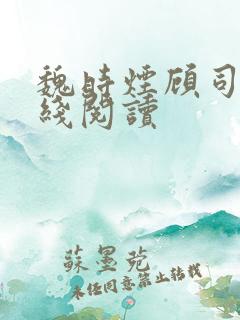 魏時煙顾司
綫閱讀
蘇墨菀
未经同意禁止转载